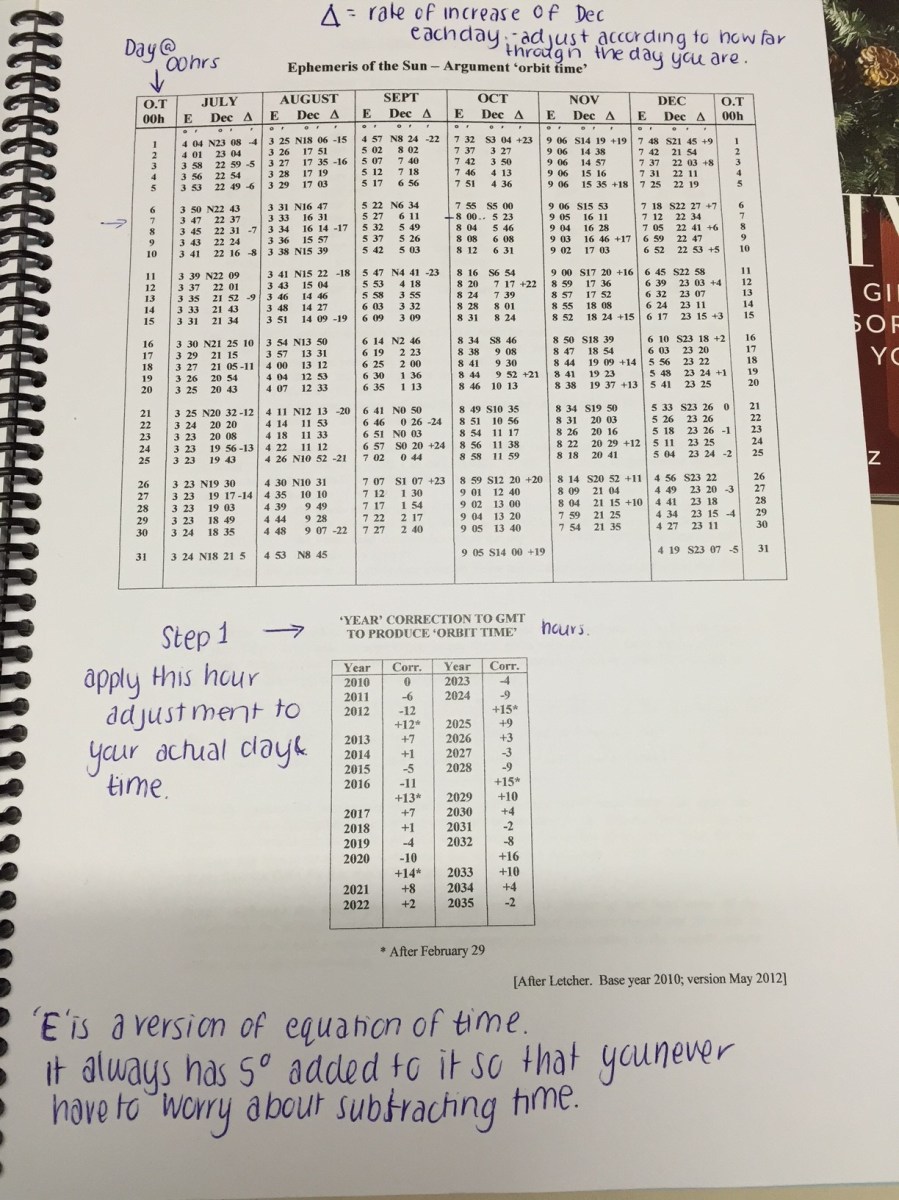 Δ = rate of increase of Dec
each day.-adjust according to how far
through the day you are.
Day@
00hrs
Ephemeris of the Sun – Argument 'orbit time'
O.T JULY AUGUST SEPT OCT NOV DEC O.T
00h E Dec Δ E Dec Δ E Dec Δ E Dec Δ E Dec Δ E Dec Δ 00h
1 4 04 N23 08 -4 3 25 N18 06 -15 4 57 N8 24 -22 7 32 S3 04 +23 9 06 S14 19 +19 7 48 S21 45 +9 1
2 4 01 23 04 3 26 17 51 5 02 8 02 7 37 3 27 9 06 14 38 7 42 21 54 2
3 3 58 22 59 -5 3 27 17 35 -16 5 07 7 40 7 42 3 50 9 06 14 57 7 37 22 03 +8 3
4 3 56 22 54 3 28 17 19 5 12 7 18 7 46 4 13 9 06 15 16 7 31 22 11 4
5 3 53 22 49 -6 3 29 17 03 5 17 6 56 7 51 4 36 9 06 15 35 +18 7 25 22 19 5
6 3 50 N22 43 3 31 N16 47 5 22 N6 34 7 55 S5 00 9 06 S15 53 7 18 S22 27 +7 6
7 3 47 22 37 3 33 16 31 5 27 6 11 8 00 5 23 9 05 16 11 7 12 22 34 7
8 3 45 22 31 -7 3 34 16 14 -17 5 32 5 49 8 04 5 46 9 04 16 28 7 05 22 41 +6 8
9 3 43 22 24 3 36 15 57 5 37 5 26 8 08 6 08 9 03 16 46 +17 6 59 22 47 9
10 3 41 22 16 -8 3 38 N15 39 5 42 5 03 8 12 6 31 9 02 17 03 6 52 22 53 +5 10
11 3 39 N22 09 3 41 N15 22 -18 5 47 N4 41 -23 8 16 S6 54 9 00 S17 20 +16 6 45 S22 58 11
12 3 37 22 01 3 43 15 04 5 53 4 18 8 20 7 17 +22 8 59 17 36 6 39 23 03 +4 12
13 3 35 21 52 -9 3 46 14 46 5 58 3 55 8 24 7 39 8 57 17 52 6 32 23 07 13
14 3 33 21 43 3 48 14 27 6 03 3 32 8 28 8 01 8 55 18 08 6 24 23 11 14
15 3 31 21 34 3 51 14 09 -19 6 09 3 09 8 31 8 24 8 52 18 24 +15 6 17 23 15 +3 15
16 3 30 N21 25 10 3 54 N13 50 6 14 N2 46 8 34 S8 46 8 50 S18 39 6 10 S23 18 +2 16
17 3 29 21 15 3 57 13 31 6 19 2 23 8 38 9 08 8 47 18 54 6 03 23 20 17
18 3 27 21 05 -11 4 00 13 12 6 25 2 00 8 41 9 30 8 44 19 09 +14 5 56 23 22 18
19 3 26 20 54 4 04 12 53 6 30 1 36 8 44 9 52 +21 8 41 19 23 5 48 23 24 +1 19
20 3 25 20 43 4 07 12 33 6 35 1 13 8 46 10 13 8 38 19 37 +13 5 41 23 25 20
21 3 25 N20 32 -12 4 11 N12 13 -20 6 41 N0 50 8 49 S10 35 8 34 S19 50 5 33 S23 26 0 21
22 3 24 20 20 4 14 11 53 6 46 0 26 -24 8 51 10 56 8 31 20 03 5 26 23 26 22
23 3 23 20 08 4 18 11 33 6 51 N0 03 8 54 11 17 8 26 20 16 5 18 23 26 -1 23
24 3 23 19 56 -13 4 22 11 12 6 57 S0 20 +24 8 56 11 38 8 22 20 29 +12 5 11 23 25 24
25 3 23 19 43 4 26 N10 52 -21 7 02 0 44 8 58 11 59 8 18 20 41 5 04 23 24 -2 25
26 3 23 N19 30 4 30 N10 31 7 07 S1 07 +23 8 59 S12 20 +20 8 14 S20 52 +11 4 56 S23 22 26
27 3 23 19 17 -14 4 35 10 10 7 12 1 30 9 01 12 40 8 09 21 04 4 49 23 20 -3 27
28 3 23 19 03 4 39 9 49 7 17 1 54 9 02 13 00 8 04 21 15 +10 4 41 23 18 28
29 3 23 18 49 4 44 9 28 7 22 2 17 9 04 13 20 7 59 21 25 4 34 23 15 -4 29
30 3 24 18 35 4 48 9 07 -22 7 27 2 40 9 05 13 40 7 54 21 35 4 27 23 11 30
31 3 24 N18 21 5 4 53 N8 45 9 05 S14 00 +19 4 19 S23 07 -5 31
'YEAR' CORRECTION TO GMT
TO PRODUCE 'ORBIT TIME'
hours.
Step 1
apply this hour
adjustment to
your actual day&
time.
Year Corr. Year Corr.
2010 0 2023 -4
2011 -6 2024 -9
2012 -12 +15*
+12* 2025 +9
2013 +7 2026 +3
2014 +1 2027 -3
2015 -5 2028 -9
2016 -11 +15*
+13* 2029 +10
2017 +7 2030 +4
2018 +1 2031 -2
2019 -4 2032 -8
2020 -10 +16
+14* 2033 +10
2021 +8 2034 +4
2022 +2 2035 -2
* After February 29
[After Letcher. Base year 2010; version May 2012]
'E' is a version of equation of time.
it always has 5° added to it so that you never
have to worry about subtracting time.